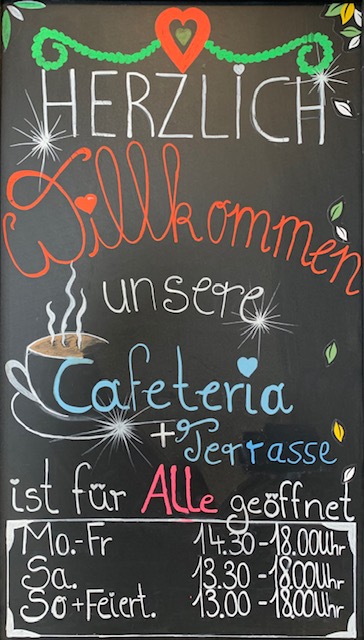 HERZLICH
Willkommen
unsere
Cafeteria
+Terrasse
ist für Alle geöffnet
Mo.-Fr 14.30-18.00Uhr
Sa. 13.30-18.00Uhr
So+Feiert. 13.00-18.00Uhr